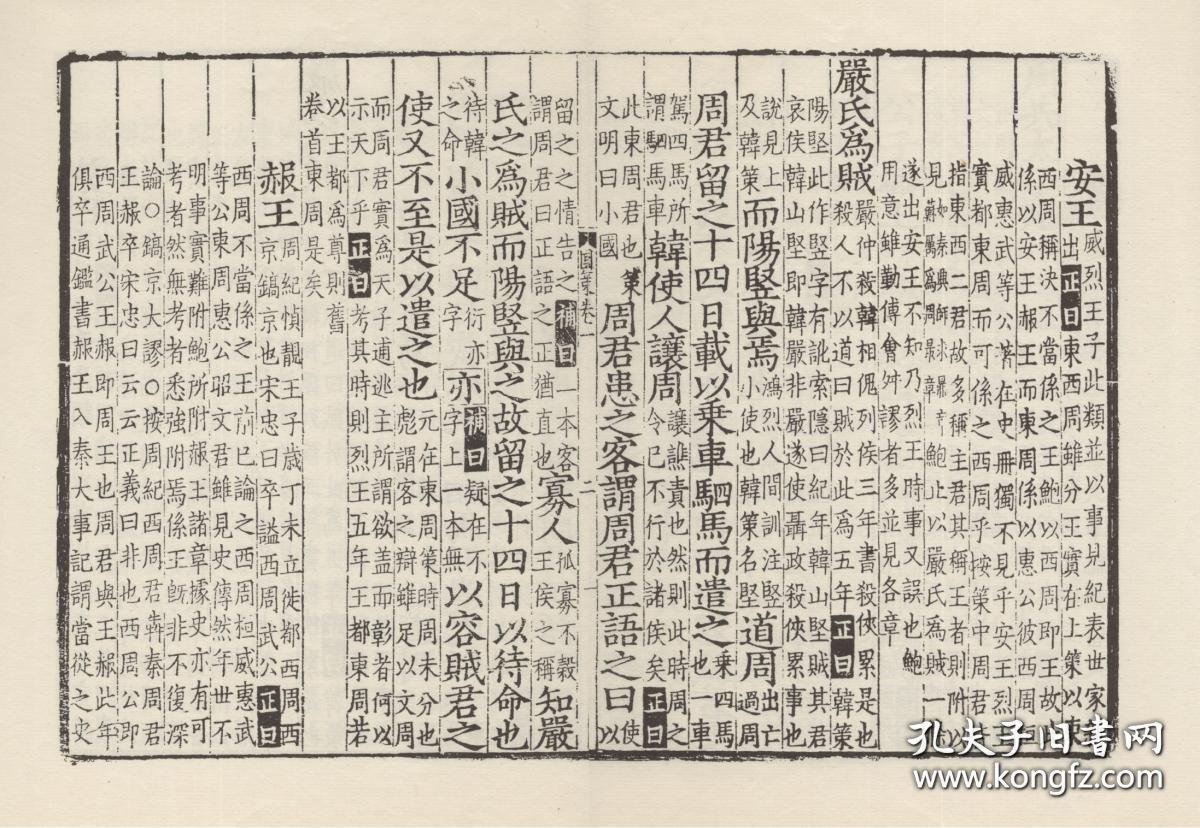 安王威烈王子此類並以事見紀表世家
出正曰東西周雖分王實在上策以東
西周稱決不當係之王鮑以西周即王故
係以安王赧王而東周係以惠公彼西周
威惠武等公潸在史冊獨不見乎安王烈王
實都東周而可係之西周乎按策中周君
指東西二君故多稱主君其稱王者則附以
見鮑止以嚴氏爲賊一
遂出安王不知乃烈王時事又誤也鮑
用意雖勤傅會舛謬者多並見各章
嚴氏爲賊嚴仲殺韓相傀列侯三年書殺俠累是也
殺人不以道曰賊於此爲五年正曰韓策
陽堅此作竪字有訛索隱曰紀年韓山堅賊其君
哀侯韓山堅即韓嚴非嚴遂使聶政殺俠累事也
說見上及韓策而陽竪與焉鴻烈人間訓注竪小使也韓策名堅道周出亡過周
周君留之十四日載以乗車駟馬而遣之乗四馬也一車
駕四馬所謂駟馬車韓使人讓周讓譙責也然則此時周之令已不行於諸侯矣正曰
此東周君也策文明曰小國周君患之客謂周君正語之曰使以
國策卷二
留之之情告之補曰一本客謂周君曰正語之正猶直也寡人孤寡不穀王侯之稱知嚴
氏之爲賊而陽竪與之故留之十四日以待命也
待韓之命小國不足衍亦字亦補曰疑在不字上一本無以容賊君之
使又不至是以遣之也元在東周策時周未分也彪謂客之辯雖足以文周
而周君實爲天子逋逃主所謂欲盖而彰者何以
示天下乎正曰考其時則烈王五年王都東周若
以王都爲尊則舊
卷首東周是矣
赧王周紀慎靚王子歲丁未立徙都西周西
京鎬京也宋忠曰卒謚西周武公正曰
西周不當係之王前已論之西周桓威惠武
等公東周惠公昭文君雖見史傳然年世不
明事實難附鮑所附赧王諸章據史亦有可
考者然無考者悉強附焉係王旣非不復深
論○鎬京大謬○按周紀西周君犇秦周君
王赧卒宋忠曰云云正義曰非也西周公即
西周武公王赧即周王也周君與王赧此年
俱卒通鑑書赧王入秦大事記謂當從之史
孔夫子旧书网
www.kongfz.com